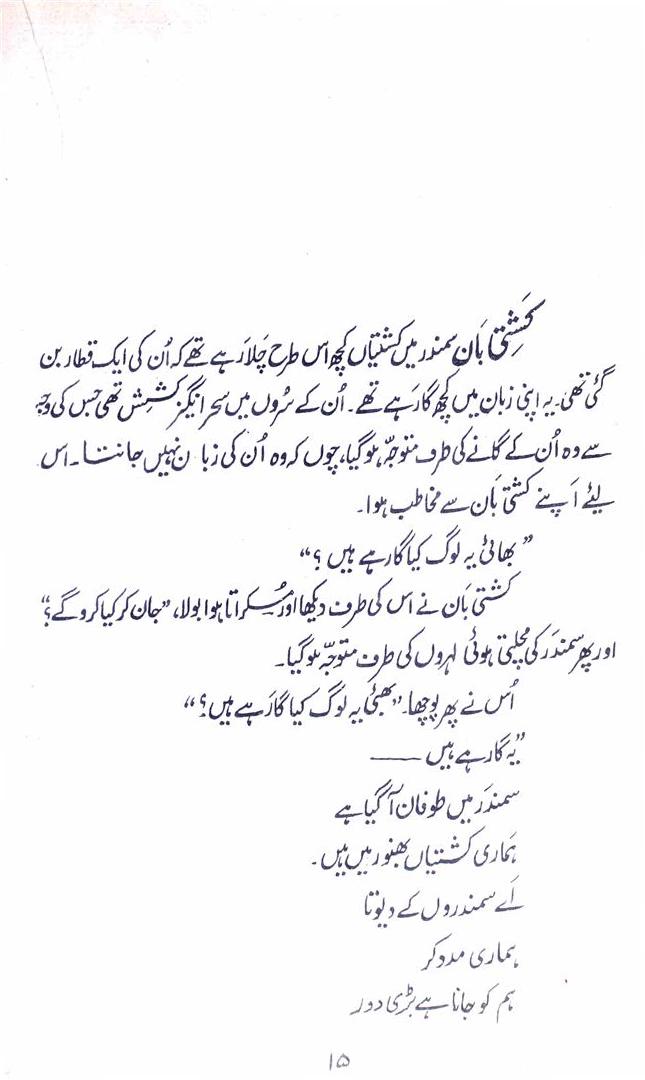 کَشِتی بَان سمندر میں کشتیاں کچھ اس طرح چَلا رَہے تھے کہ اُن کی ایک قطار بن
گئی تھی۔ یہ اپنی زبان میں کچھ گا رَہے تھے۔ اُن کے سُروں میں سحر انگیز کشِش تھی جس کی وجہ
سے وہ اُن کے گانے کی طرف متوجّہ ہو گیا، چوں کہ وہ اُن کی زبان نہیں جانتا۔ اس
لیئے اَپنے کشتی بَان سے مخاطب ہوا۔
”بھائی یہ لوگ کیا گا رہے ہیں؟“
کشتی بَان نے اس کی طرف دیکھا اور مُسکراتا ہوا بولا، ”جان کر کیا کرو گے؟“
اور پھر سمندَر کی مچلتی ہوئی لہروں کی طرف متوجّہ ہو گیا۔
اُس نے پھر پوچھا۔ ”بھئی یہ لوگ کیا گا رَہے ہیں؟“
”یہ گا رہے ہیں ——
سمندَر میں طوفان آ گیا ہے
ہَماری کشتیاں بھنور میں ہیں۔
اَے سمندروں کے دیوتا
ہماری مدد کر
ہم کو جانا ہے بڑی دور
۱۵